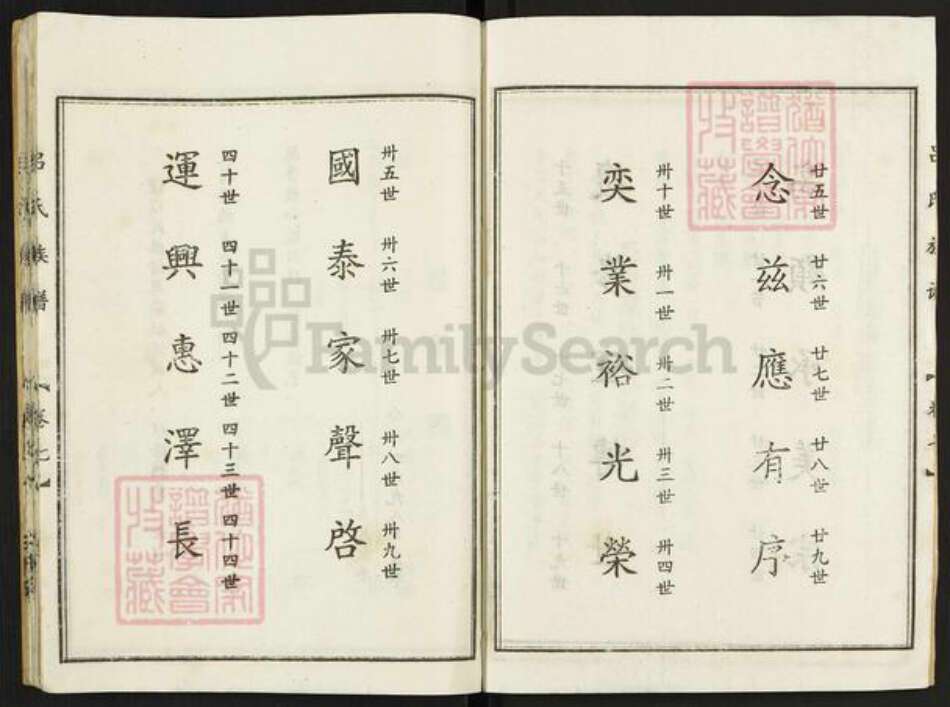 廿五世 廿六世 廿七世 廿八世 廿九世
念茲應有序
卅十世 卅一世 卅二世 卅三世 卅四世
奕業裕光榮
卅五世 卅六世 卅七世 卅八世 卅九世
國泰家聲啓
四十世 四十一世 四十二世 四十三世 四十四世
運興惠澤長
FamilySearch